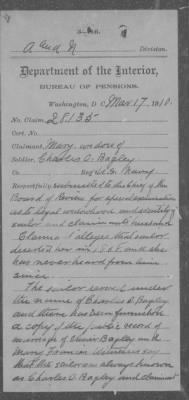 3-
A and N Division.
Department of the Interior,
BUREAU OF PENSIONS.
Washington, D.C. Mar 17, 1910.
No. Claim, 28135
Cert. No.
Claimant, Mary, widow of
Soldier, Charles A. Bagley
Co. Reg't U.S. Navy
Respectfully submitted to the Chief of the
Board of Review for special examination
as to legal widowhood and identity of
sailor and
Claimant alleges that sailor
deserted her in and she
has never heard from him
since.
The sailor served under
the name of Charles A. Bagley
and there has been furnished
a copy of the public record of
marriage of Bagley and
Mary Frances
that the sailor was always known
as Charles A. Bagley and claimant